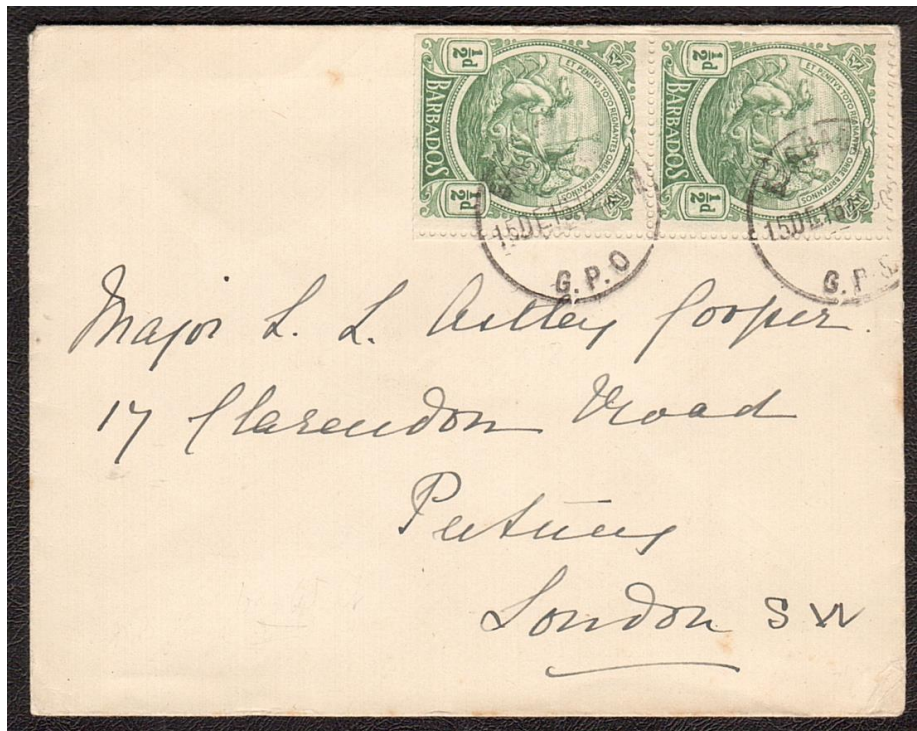 ½d BARBADOS ½d
ET PENITUS TOTO REGNANTES ORBE BRITANNOS
½d BARBADOS ½d
ET PENITUS TOTO REGNANTES ORBE BRITANNOS
15 DE 16
G.P.O
15 DE 16
G.P.O
Major L. L. Astley Cooper.
17 Clarendon Road
Putney
London S W